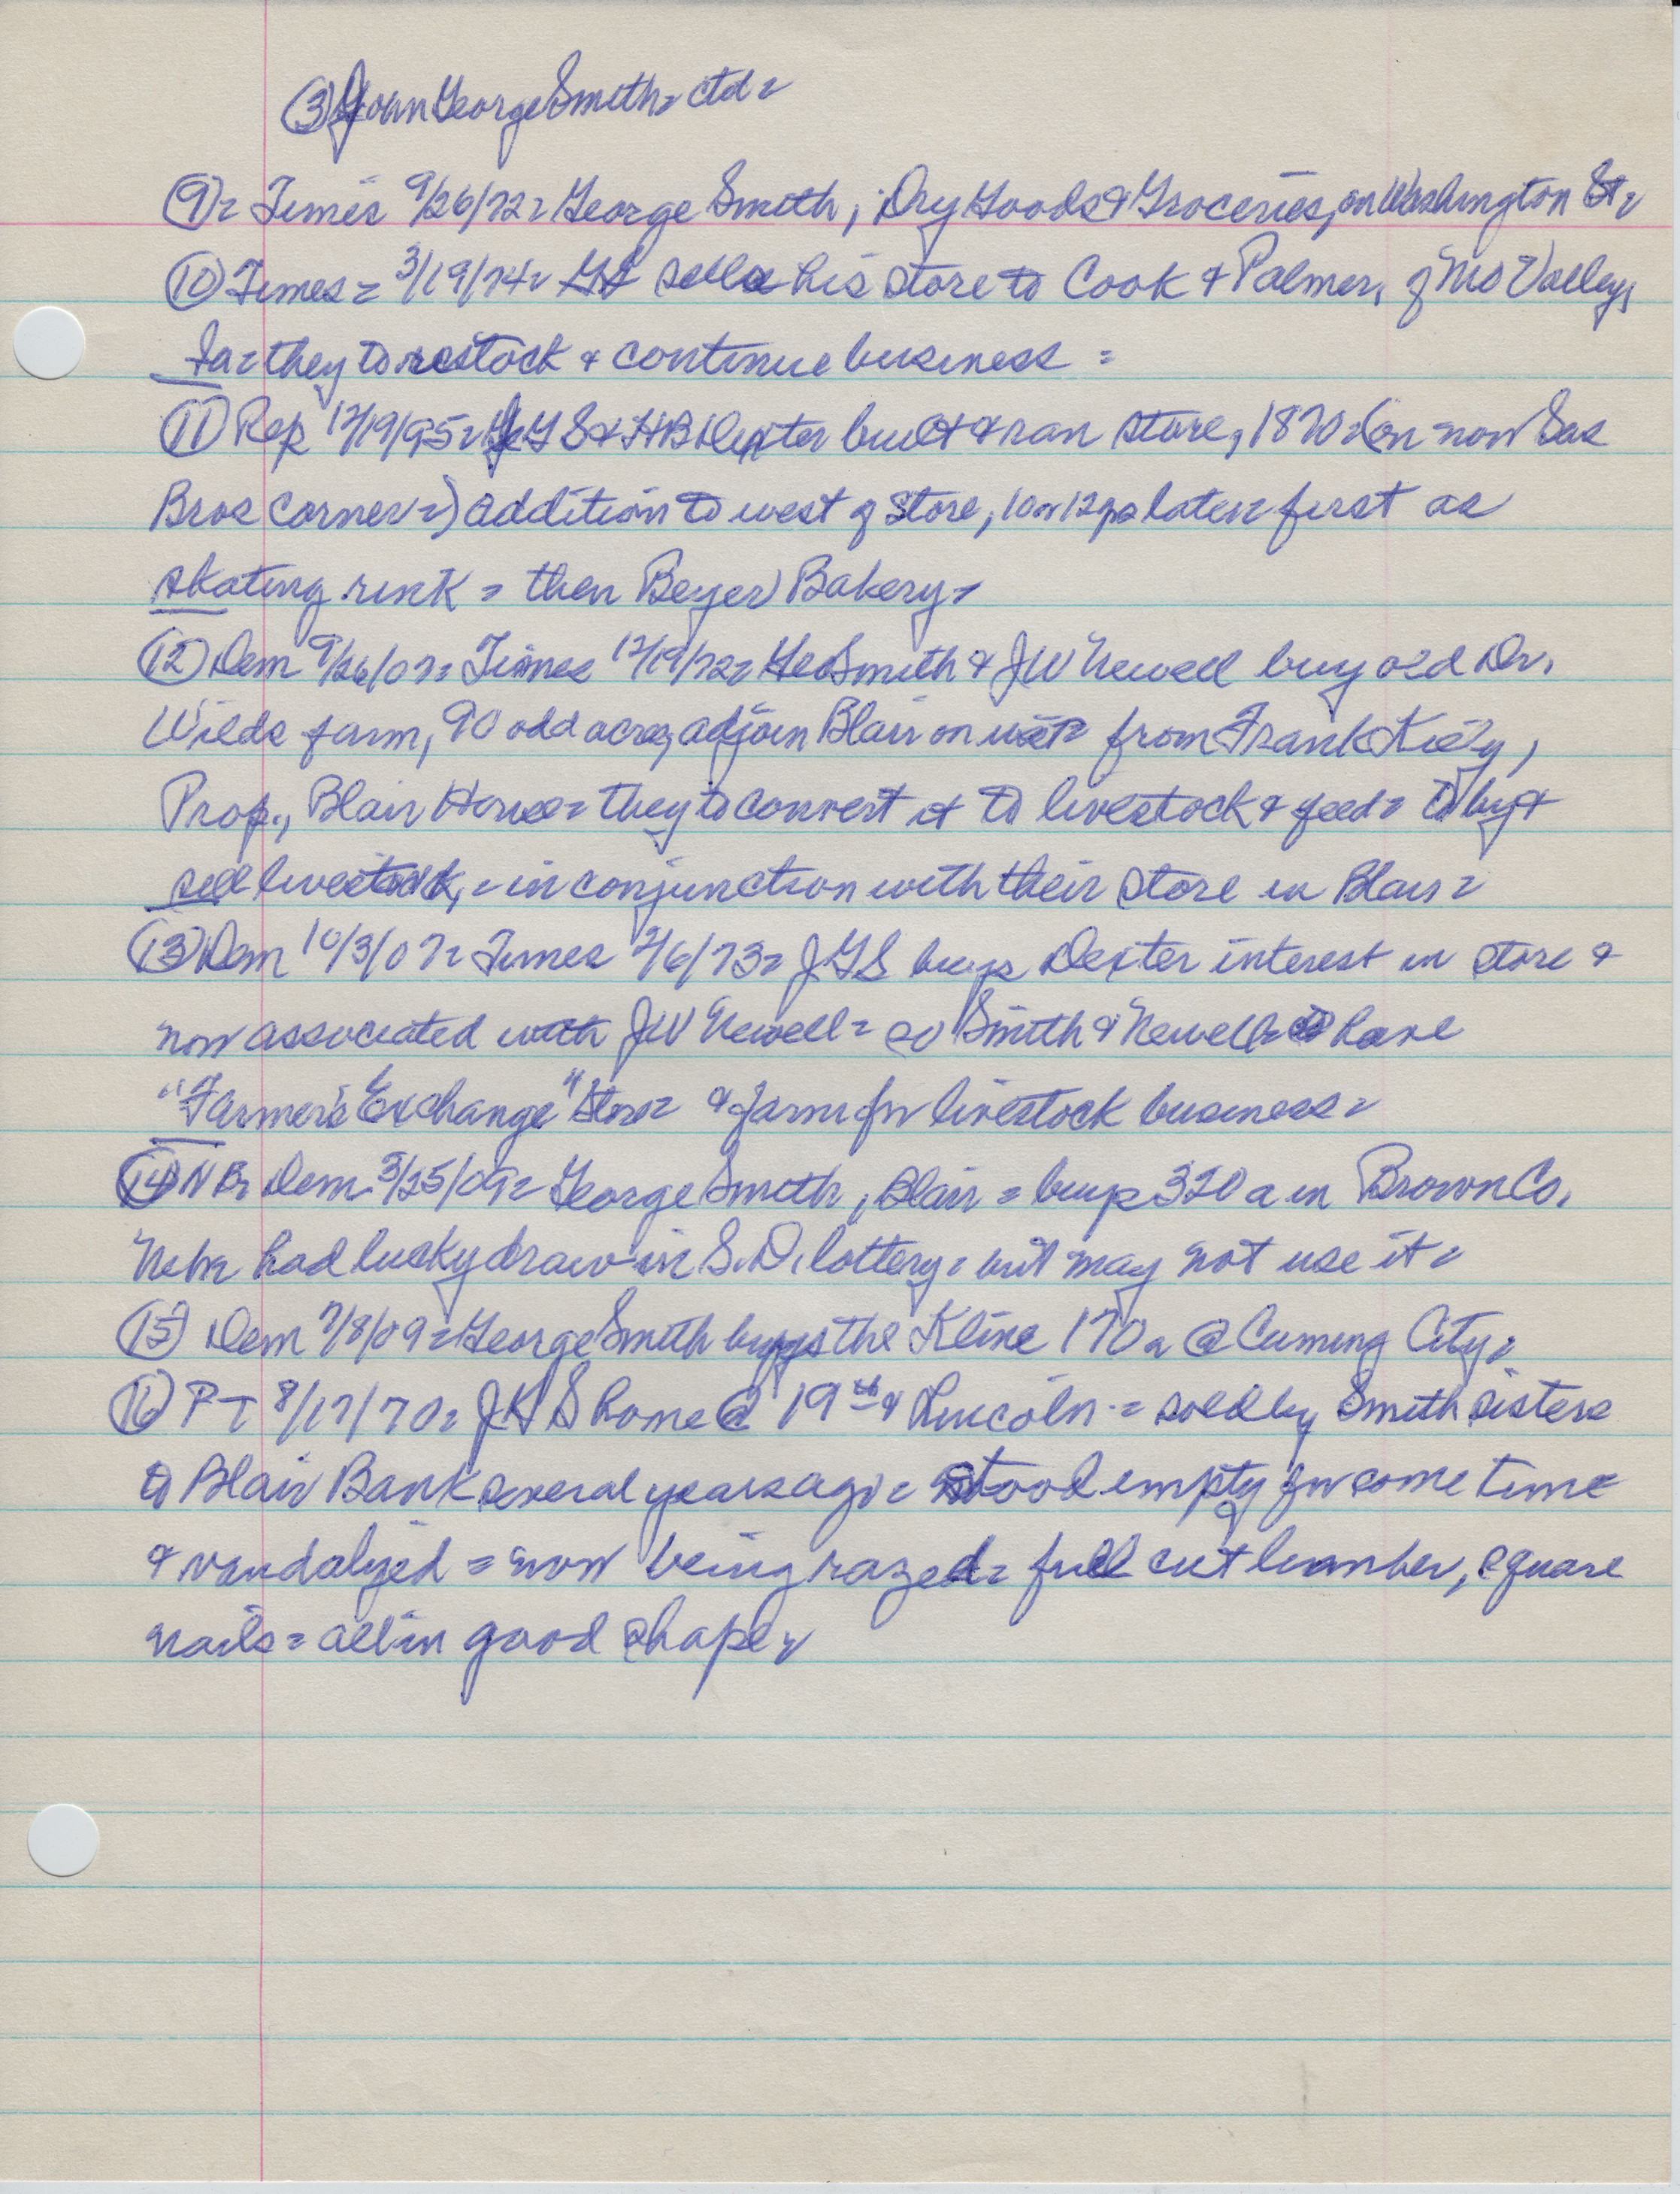 ③ John George Smith = ctd =
⑨ = Times 9/26/72 = George Smith, Dry Goods & Groceries, on Washington St =
⑩ Times = 3/19/74 = GS sells his store to Cook & Palmer, of Mo Valley,
Ia = they to restock & continue business =
⑪ Rep 12/19/95 = JGS & HB Dexter built & ran store, 1870 = (on now Sas
Bros corner =) addition to west of store, 10 or 12 yrs later = first as
skating rink = then Beyer Bakery =
⑫ Dem 9/26/07 = Times 12/19/72 = Geo Smith & JW Newell buy old Dr.
Wilds farm, 90 odd acres, adjoin Blair on west = from Frank
Prop., Blair House = they to convert it to livestock & feed = to buy &
sell livestock, = in conjunction with their store in Blair =
⑬ Dem 10/3/07 = Times 2/6/73 = JGS buys Dexter interest in store &
now associated with JW Newell = so Smith & Newell to have
"Farmer's Exchange" Store = & farm for livestock business =
⑭ NB, Dem 3/25/09 = George Smith, Blair = buys 320 a in Brown Co.
Nebr had lucky draw in S.D. lottery = but may not use it =
⑮ Dem 7/8/09 = George Smith buys the Kline 170 a @ Cuming City =
⑯ PT 8/17/70 = JGS home @ 19th & Lincoln = sold by Smith sisters
to Blair Bank several years ago = stood empty for some time
& vandalized = now being razed = full cut lumber, square
nails = all in good shape =